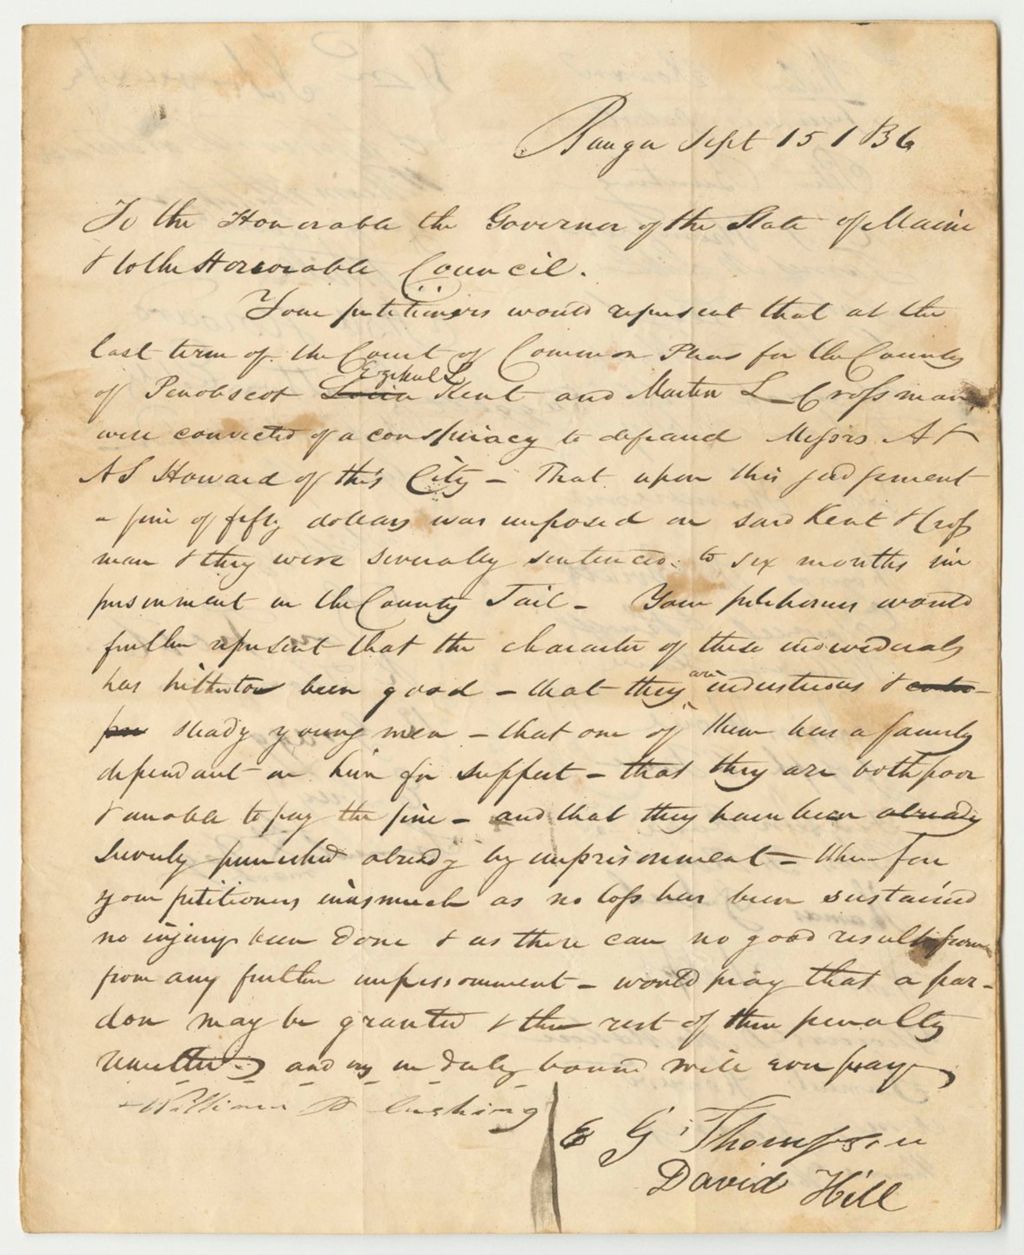 Bangor Sept 15 1836
To the Honorable the Governor of the State of Maine
& to the Honorable Council.
Your petitioners would represent that at the
last term of the Court of Common Pleas for the County
Ezekiel L
of Penobscot Kent and Martin L Crossman
were convicted of a conspiracy to defraud Messrs A &
A S Howard of this City – That upon this judgement
a fine of fifty dollars was imposed on said Kent & Cross
man & they were severally sentenced to six months im
prisonment in the County Jail – Your petitioners would
further represent that the character of these individuals
has hitherto been good – that they are industrious &
steady young men – that one of them has a family
dependant on him for support – that they are both poor
& unable to pay the fine – and that they have been already
severely punished already by imprisonment – therefore
your petitioners inasmuch as no loss has been sustained
no injury been done & as there can no good result from
from any further imprisonment – would pray that a par-
don may be granted & the rest of their penalty
remitted – and as in duty bound will ever pray
William D Cushing
E G Thompson
David Hill